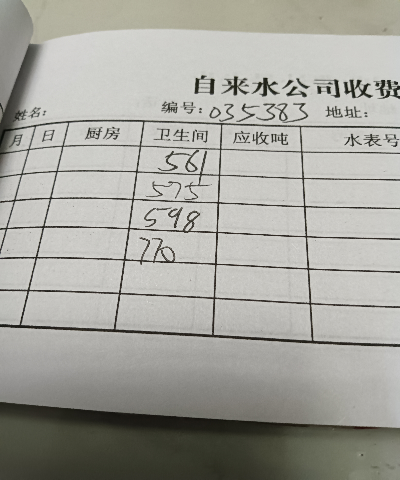 自来水公司收费
姓名: 编号: 035383 地址:
月 日 厨房 卫生间 应收吨 水表号
561
575
598
770